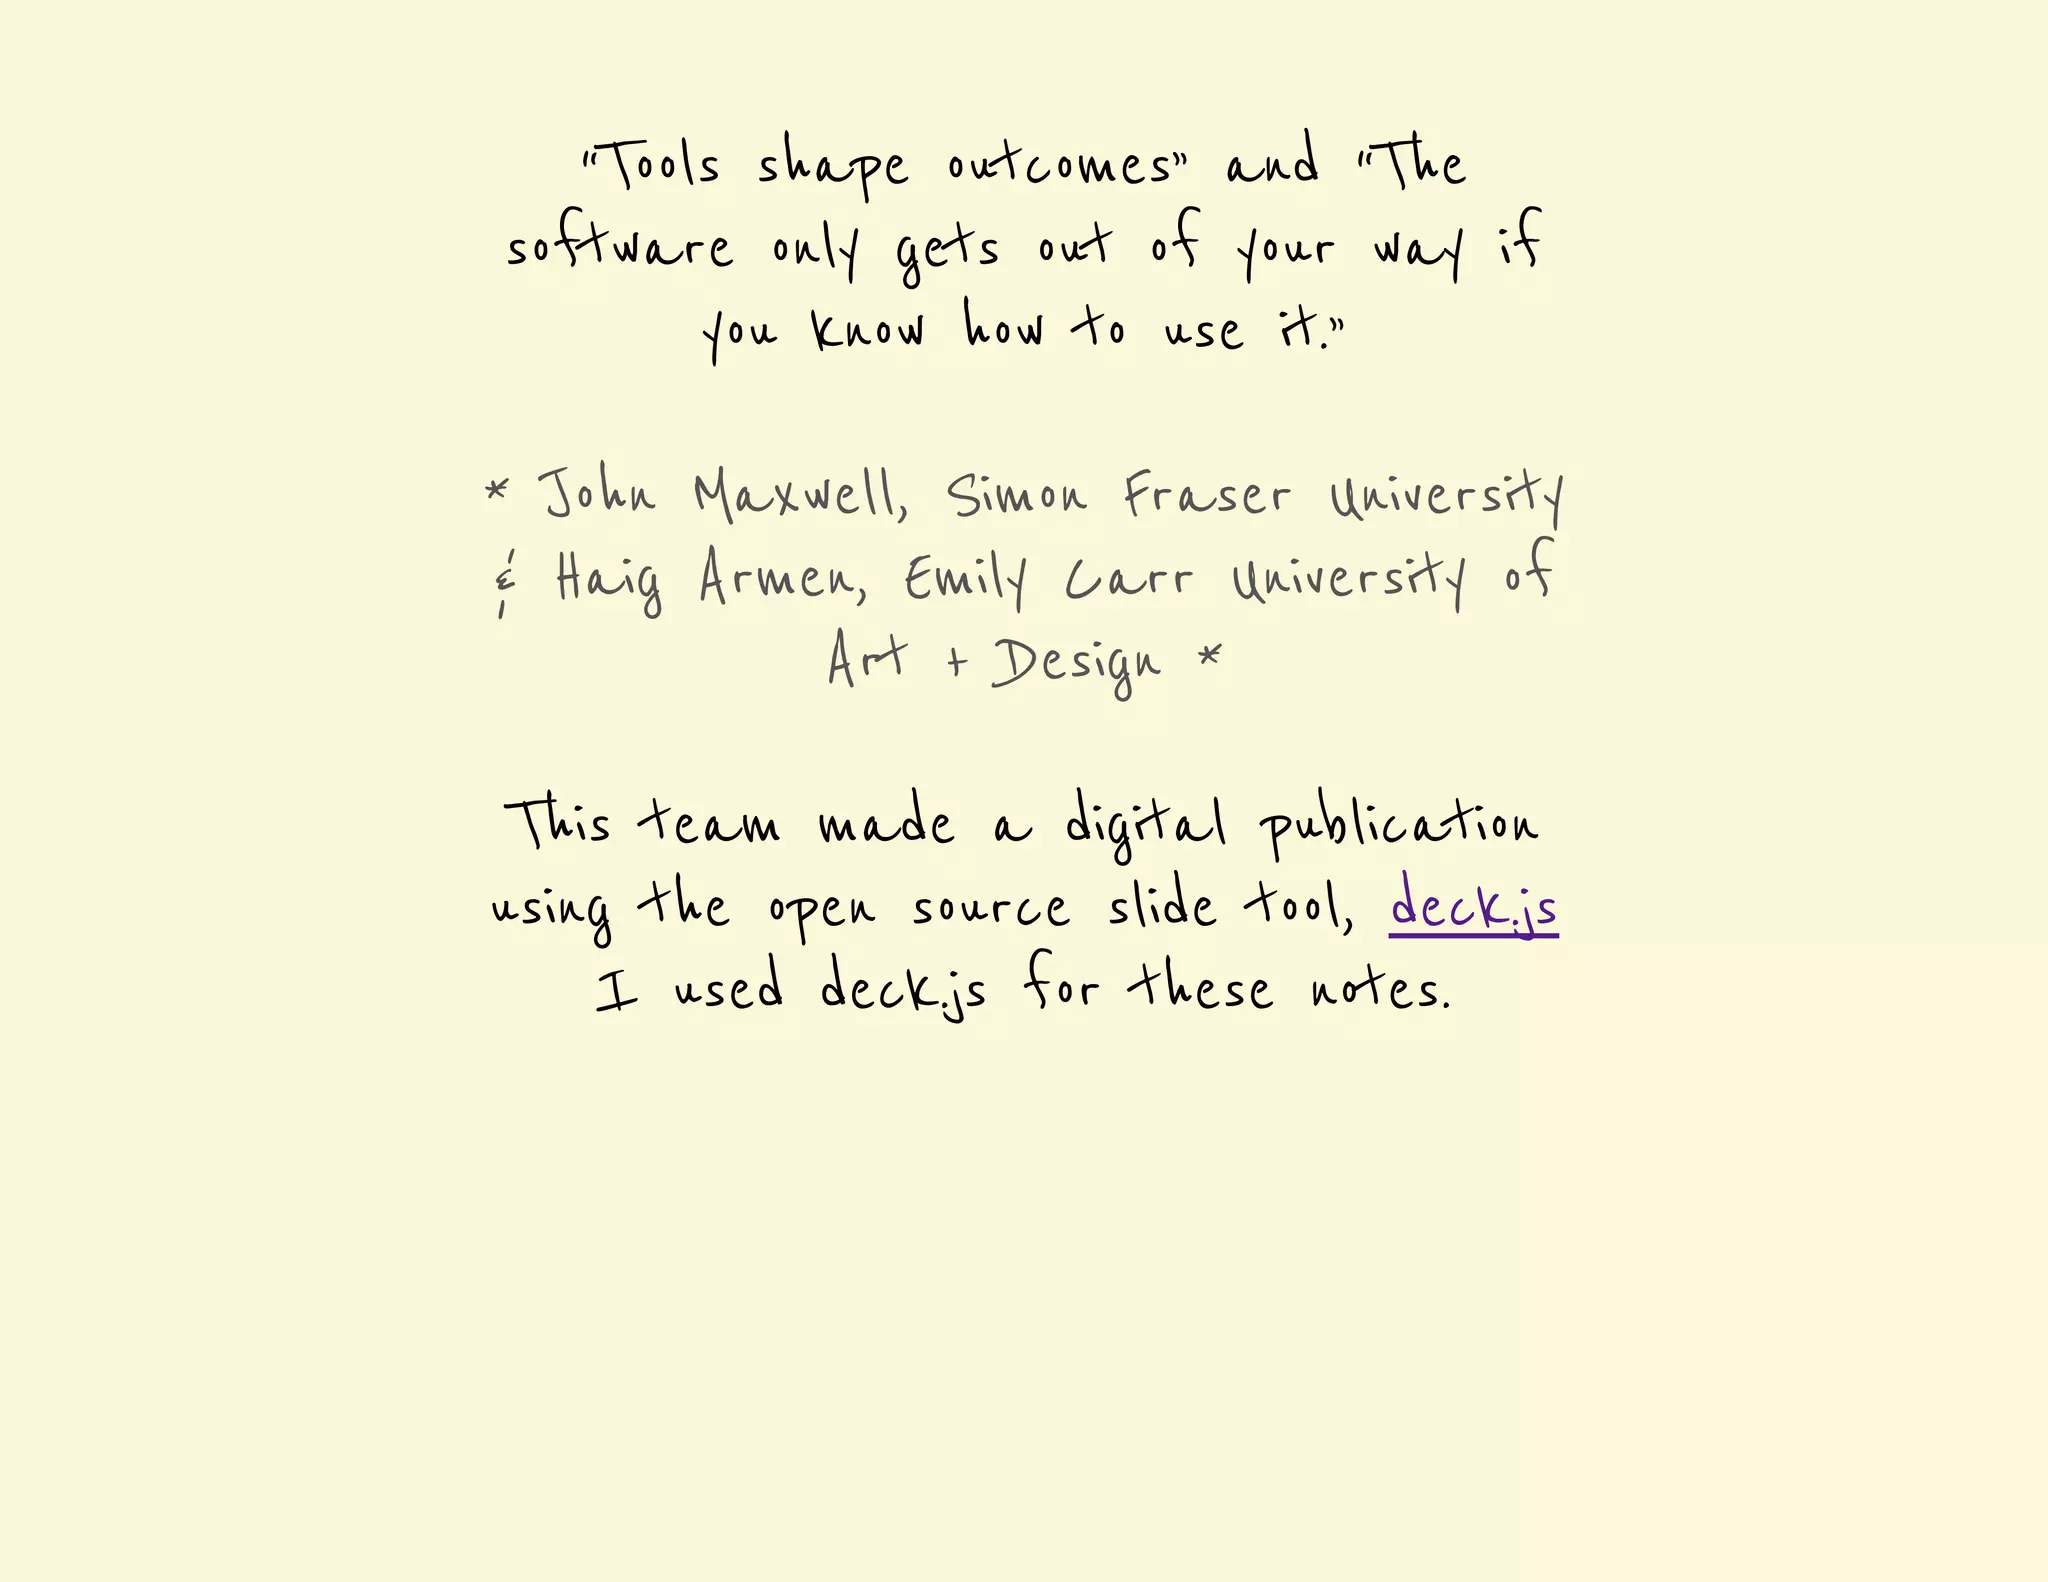 “Tools shape outcomes” and “The
software only gets out of your way if
you know how to use it.”
* John Maxwell, Simon Fraser University
& Haig Armen, Emily Carr University of
Art + Design *
This team made a digital publication
using the open source slide tool, deck.js
I used deck.js for these notes.